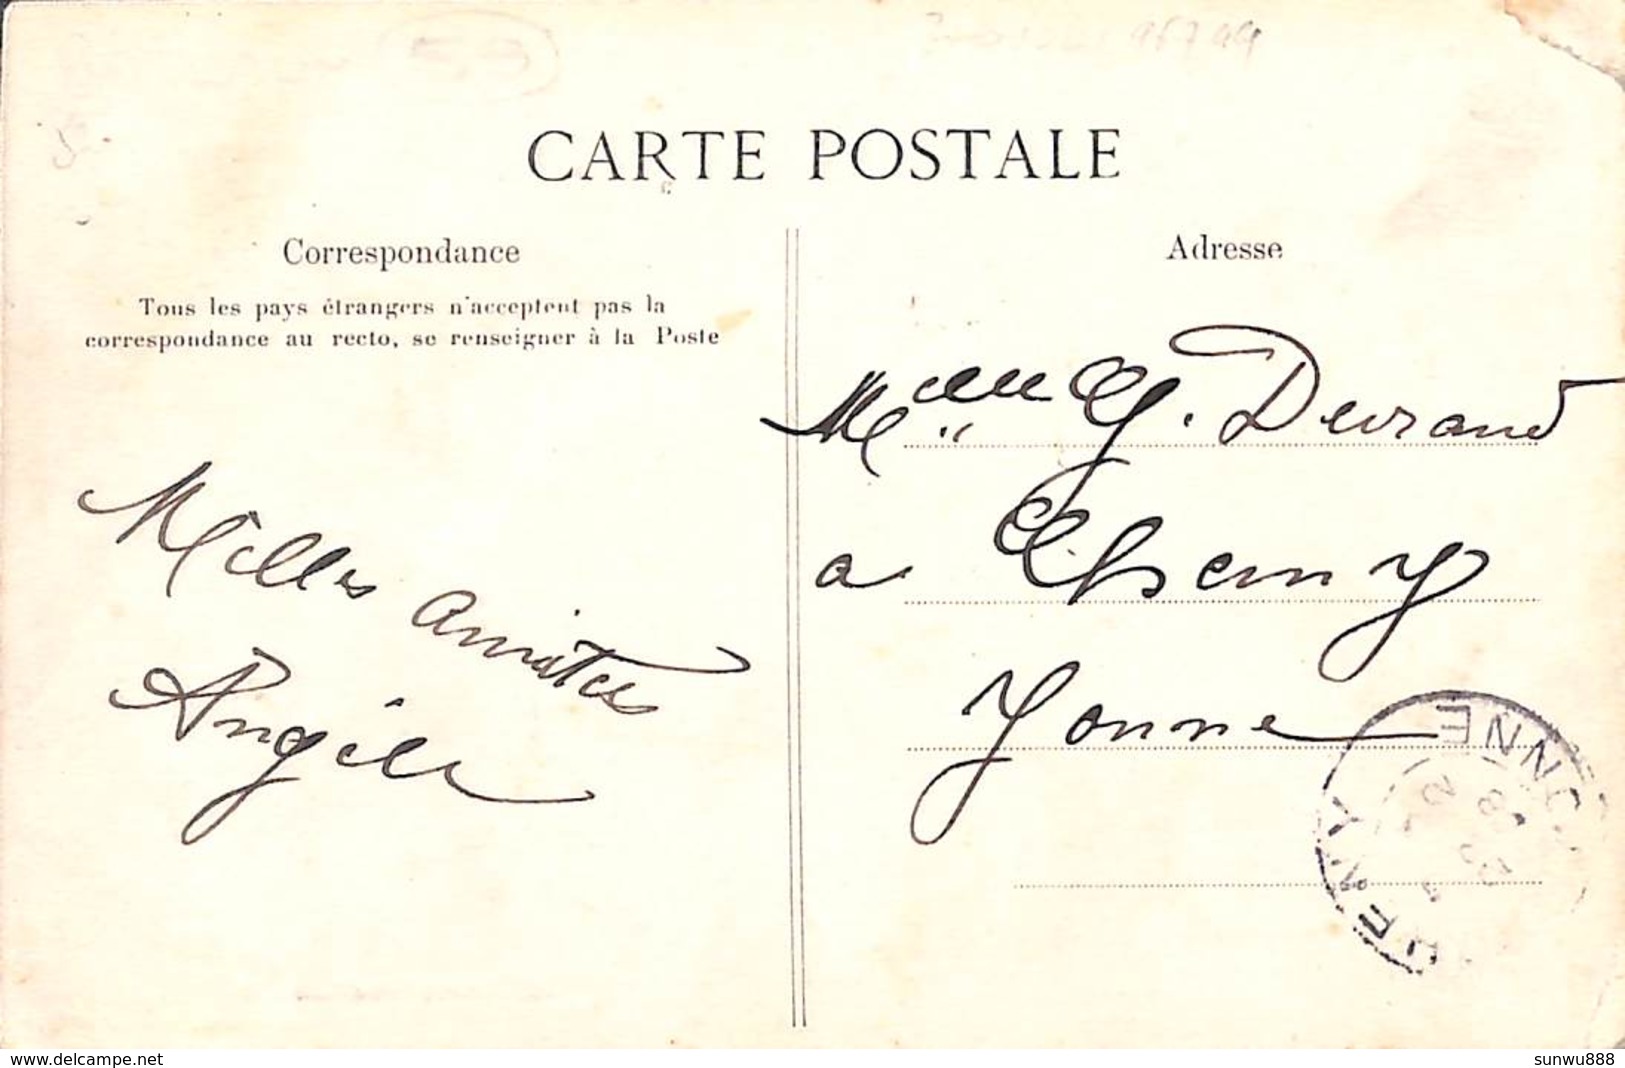 CARTE POSTALE
Correspondance
Tous les pays étrangers n'acceptent pas la
correspondance au recto, se renseigner à la Poste
Milles amitiés
Angèle
Adresse
Melle G. Durand
a Cheny
Yonne
HENY
YONNE
www.delcampe.net
sunwu888